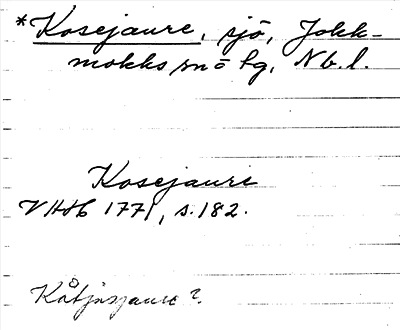 *Kosejaure, sjö, Jokk-
mokks snö lg, Nb. l.
Kosejaure
VHAH 1771, s. 182.
Kåtjasjaure?